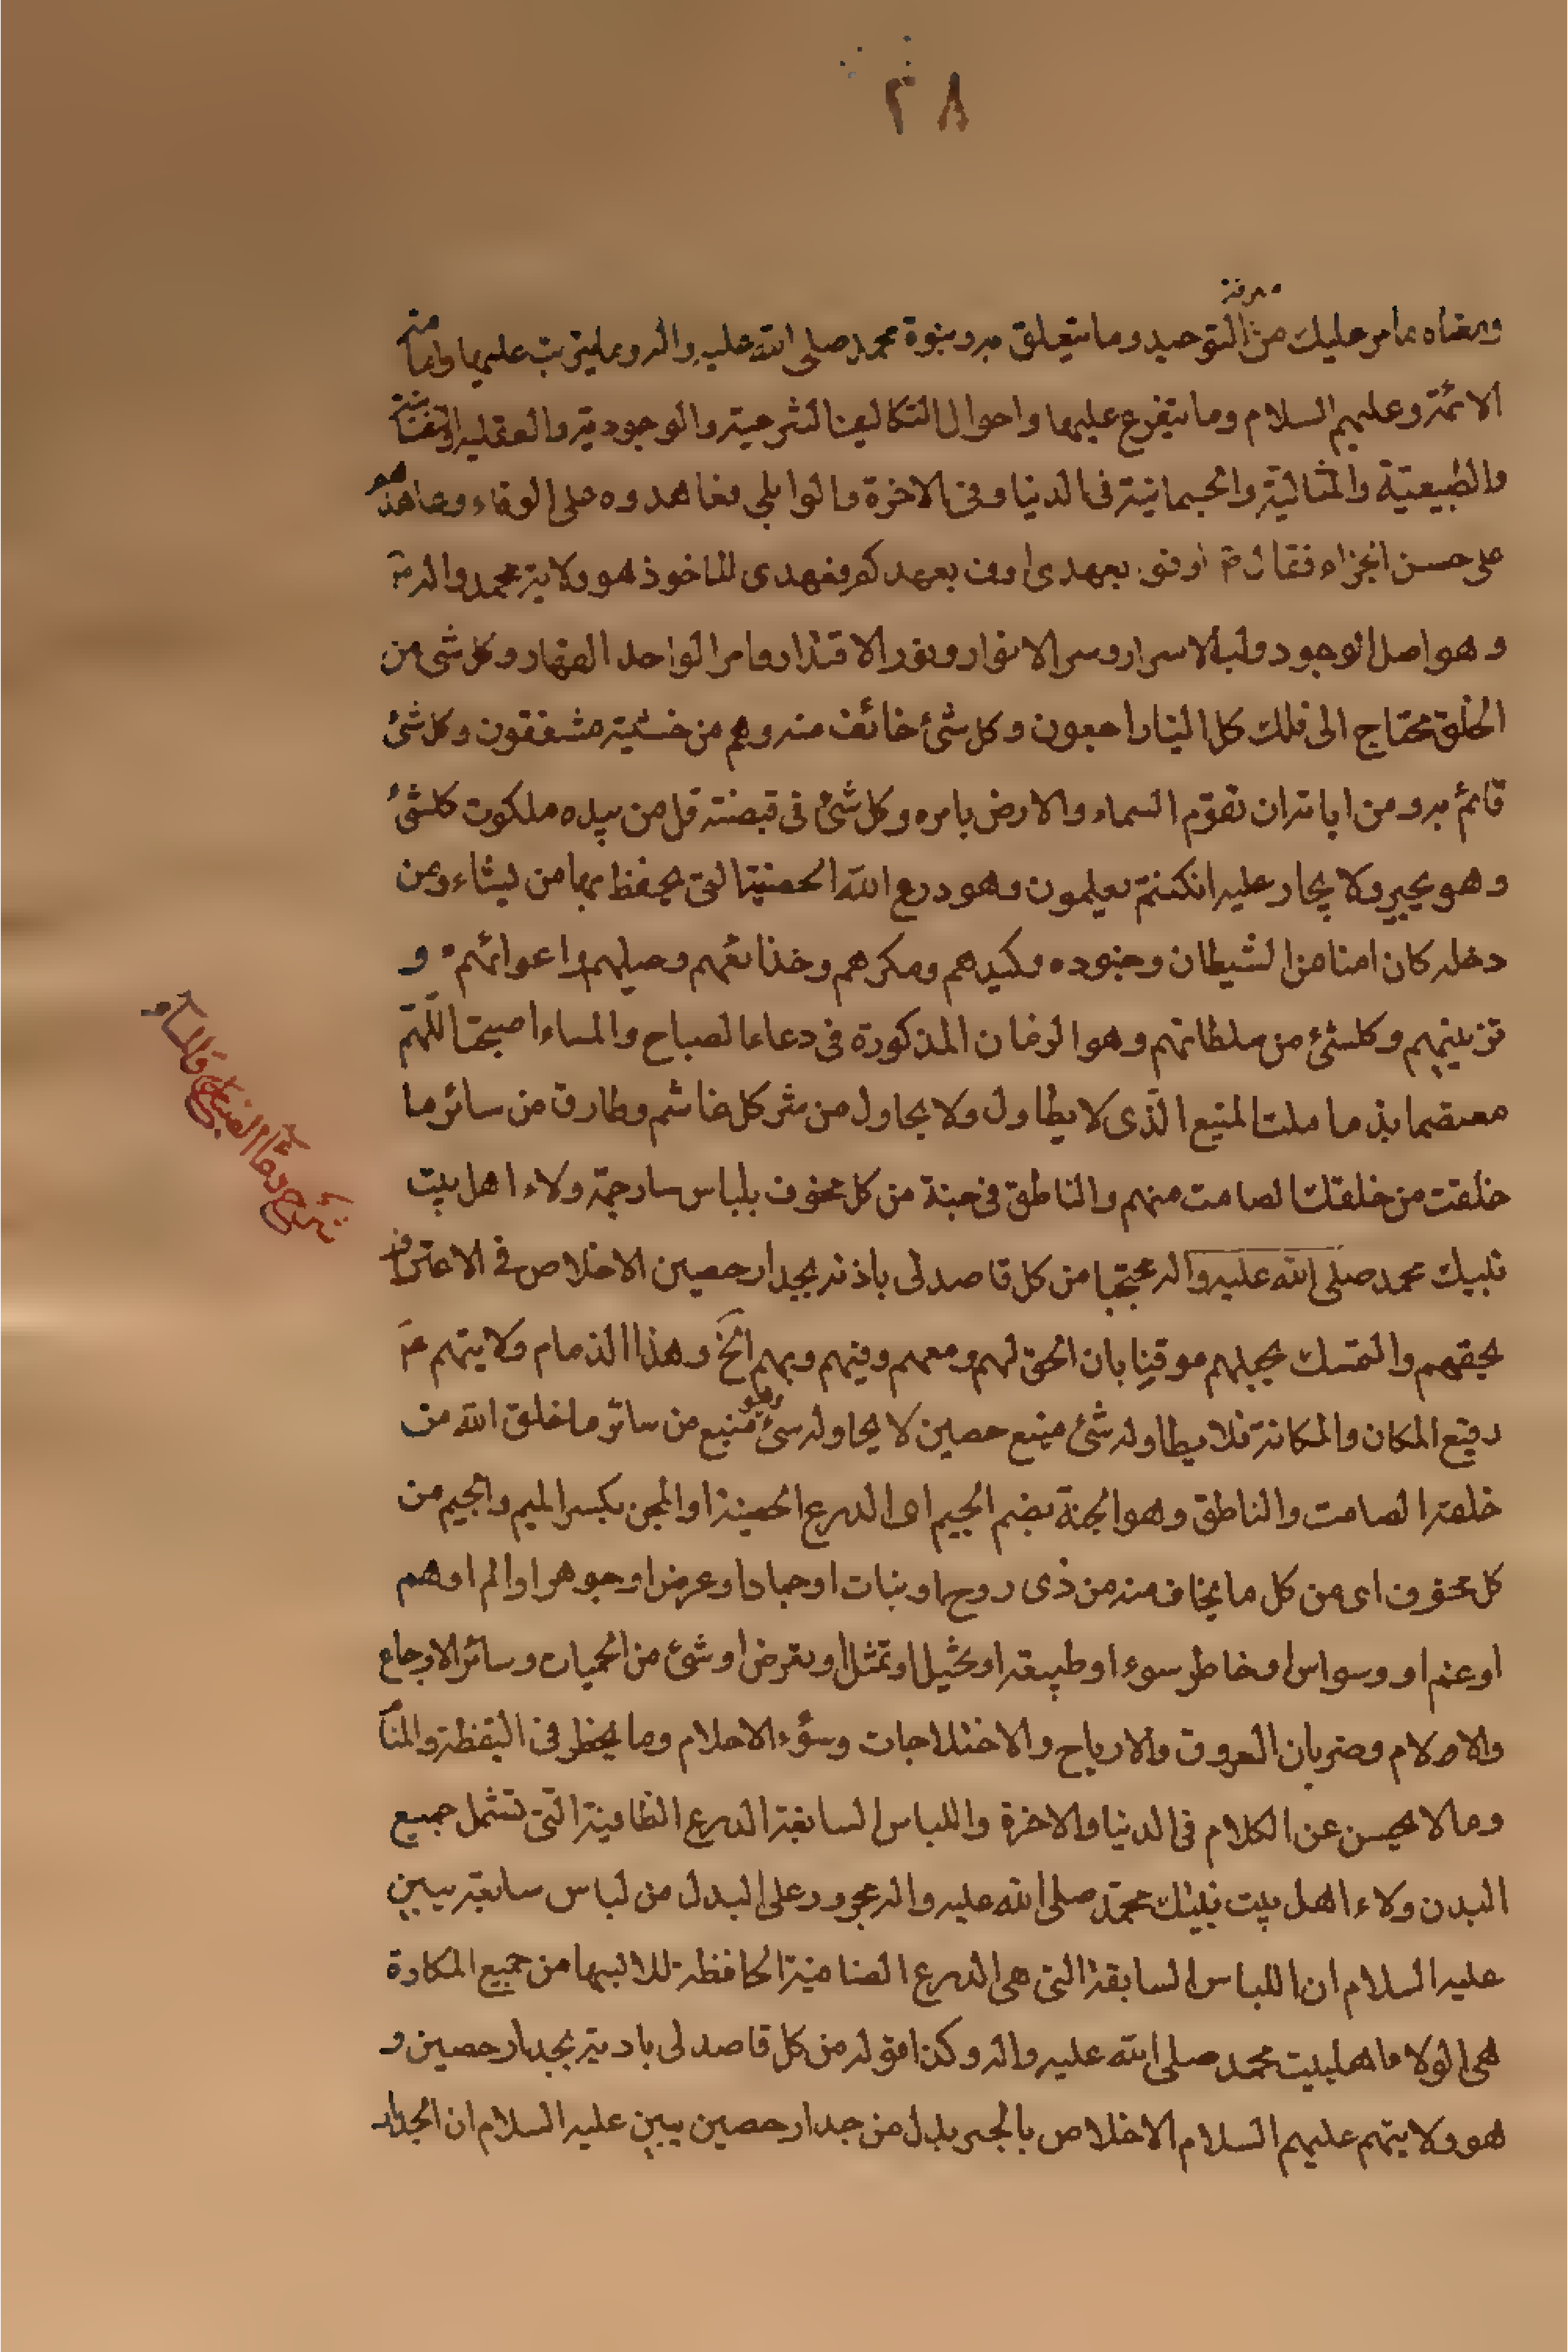 ٢٨
معرفة
ومعناه مما مر عليك من التوحيد وما يتعلق به وبنوة محمد صلى الله عليه واله وما يترتب عليها وامامته
الائمة وعليهم السلام وما يتفرع عليها واحوال التكاليف الشرعية والوجودية والعقلية والنفسانية
والطبيعية والمثالية والجسمانية في الدنيا وفي الاخرة قالوا بلى فعاهدوه على الوفاء وعاهدهم
على حسن الجزاء فقال تم اوفوا بعهدى اوف بعهدكم فعهدى الماخوذ هو ولاية محمد واله
وهو اصل الوجود وليلة الاسرار وسر الانوار ونور الاقتدار وامر الواحد القهار وكل شئ من
الخلق محتاج الى ذلك كل الينا راجعون وكل شئ خائف منه وهم من خشيته مشفقون وكل شئ
قائم به ومن اياته ان تقوم السماء والارض بامره وكل شئ في قبضته قل من بيده ملكوت كلشئ
وهو يجير ولا يجار عليه ان كنتم تعلمون وهو درع الله الحصينة التى يحفظ بها من يشاء ومن
دخله كان امنا من الشيطان وجنوده وكيدهم ومكرهم وخدائعهم وحيلهم واغوائهم و
تزيينهم وكلشئ من سلطانهم وهو المذكورة في دعاء الصباح والمساء اصبحت اللهم
معتصما بذمامك المنيع الذى لا يطاول ولا يحاول من شر كل غاشم وطارق من سائر ما
خلقت من خلقك الصامت منهم والناطق في جنة من كل مخوف بلباس سابغة ولاء اهل بيت
نبيك محمد صلى الله عليه واله محتجبا من كل قاصد لى باذية بجدار حصين الاخلاص في الاعتراف
بحقهم والتمسك بحبلهم موقنا بان الحق لهم ومعهم وفيهم وبهم الخ وهذا الذمام ولايتهم
رفيع المكان والمكانة فلا يطاوله شئ منيع حصين لا يحاوله شئ منيع من سائر ما خلق الله من
خلقه الصامت والناطق وهو الجنة بضم الجيم اى الدرع الحصينة او المجن بكسر الميم والجيم من
كل مخوف اى من كل ما يخاف منه من ذى روح او نبات او جماد او عرض او جوهر او الم او هم
او غم او وسواس او خاطر سوء او طبيعة او تخيل او تمثل او بعرض او شئ من الحميات وسائر الاوجاع
والاورام وضربان العروق والارياح والاختلاجات وسوء الاحلام وما يخطر في اليقظة والمنام
وما لا يحسن عن الكلام في الدنيا والاخرة واللباس السابغة الدرع الضافية التى تشمل جميع
البدن ولاء اهل بيت نبيك محمد صلى الله عليه واله مجرور على البدل من لباس سابغة يبين
عليه السلام ان اللباس السابغة التى هى الدرع الضافية الحافظة للابسها من جميع المكاره
هى الولاء اهلبيت محمد صلى الله عليه واله وكذا قوله من كل قاصد لى باذية بجدار حصين و
هو ولايتهم عليهم السلام الاخلاص بالجر بدل من جدار حصين يبين عليه السلام ان الجدار
شرح دعاء الصباح والمساء